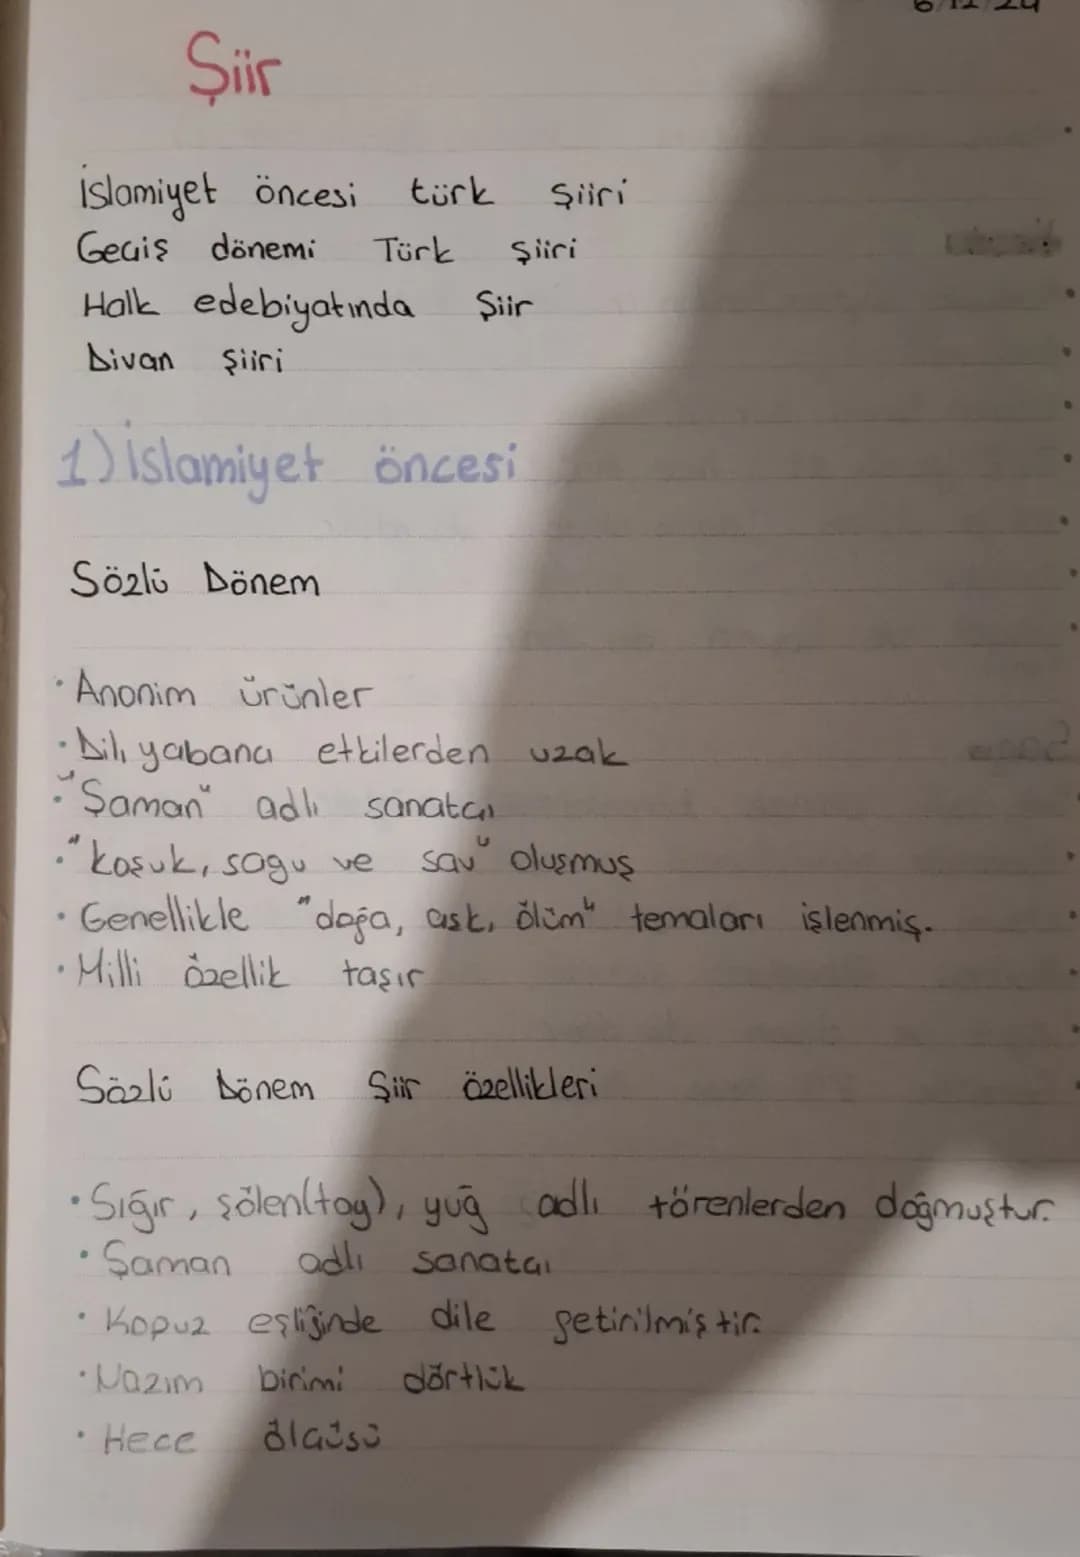 6/12/24
Şiir
İslamiyet öncesi türk şiiri
Geçiş dönemi Türk şiiri
Halk edebiyatında Şiir
Divan şiiri
1) İslamiyet öncesi
Sözlü Dönem
• Anonim ürünler
• Dili yabancı etkilerden uzak
• "Şaman" adlı sanatçı
• "koşuk, sagu ve sav" oluşmuş
• Genellikle "doğa, aşk, ölüm" temaları işlenmiş.
• Milli özellik taşır
Sözlü Dönem Şiir özellikleri
• Sığır, şölen(toy), yuğ adlı törenlerden doğmuştur.
• Şaman adlı sanatçı
• Kopuz eşliğinde dile getirilmiştir.
• Nazım birimi dörtlük
• Hece ölçüsü